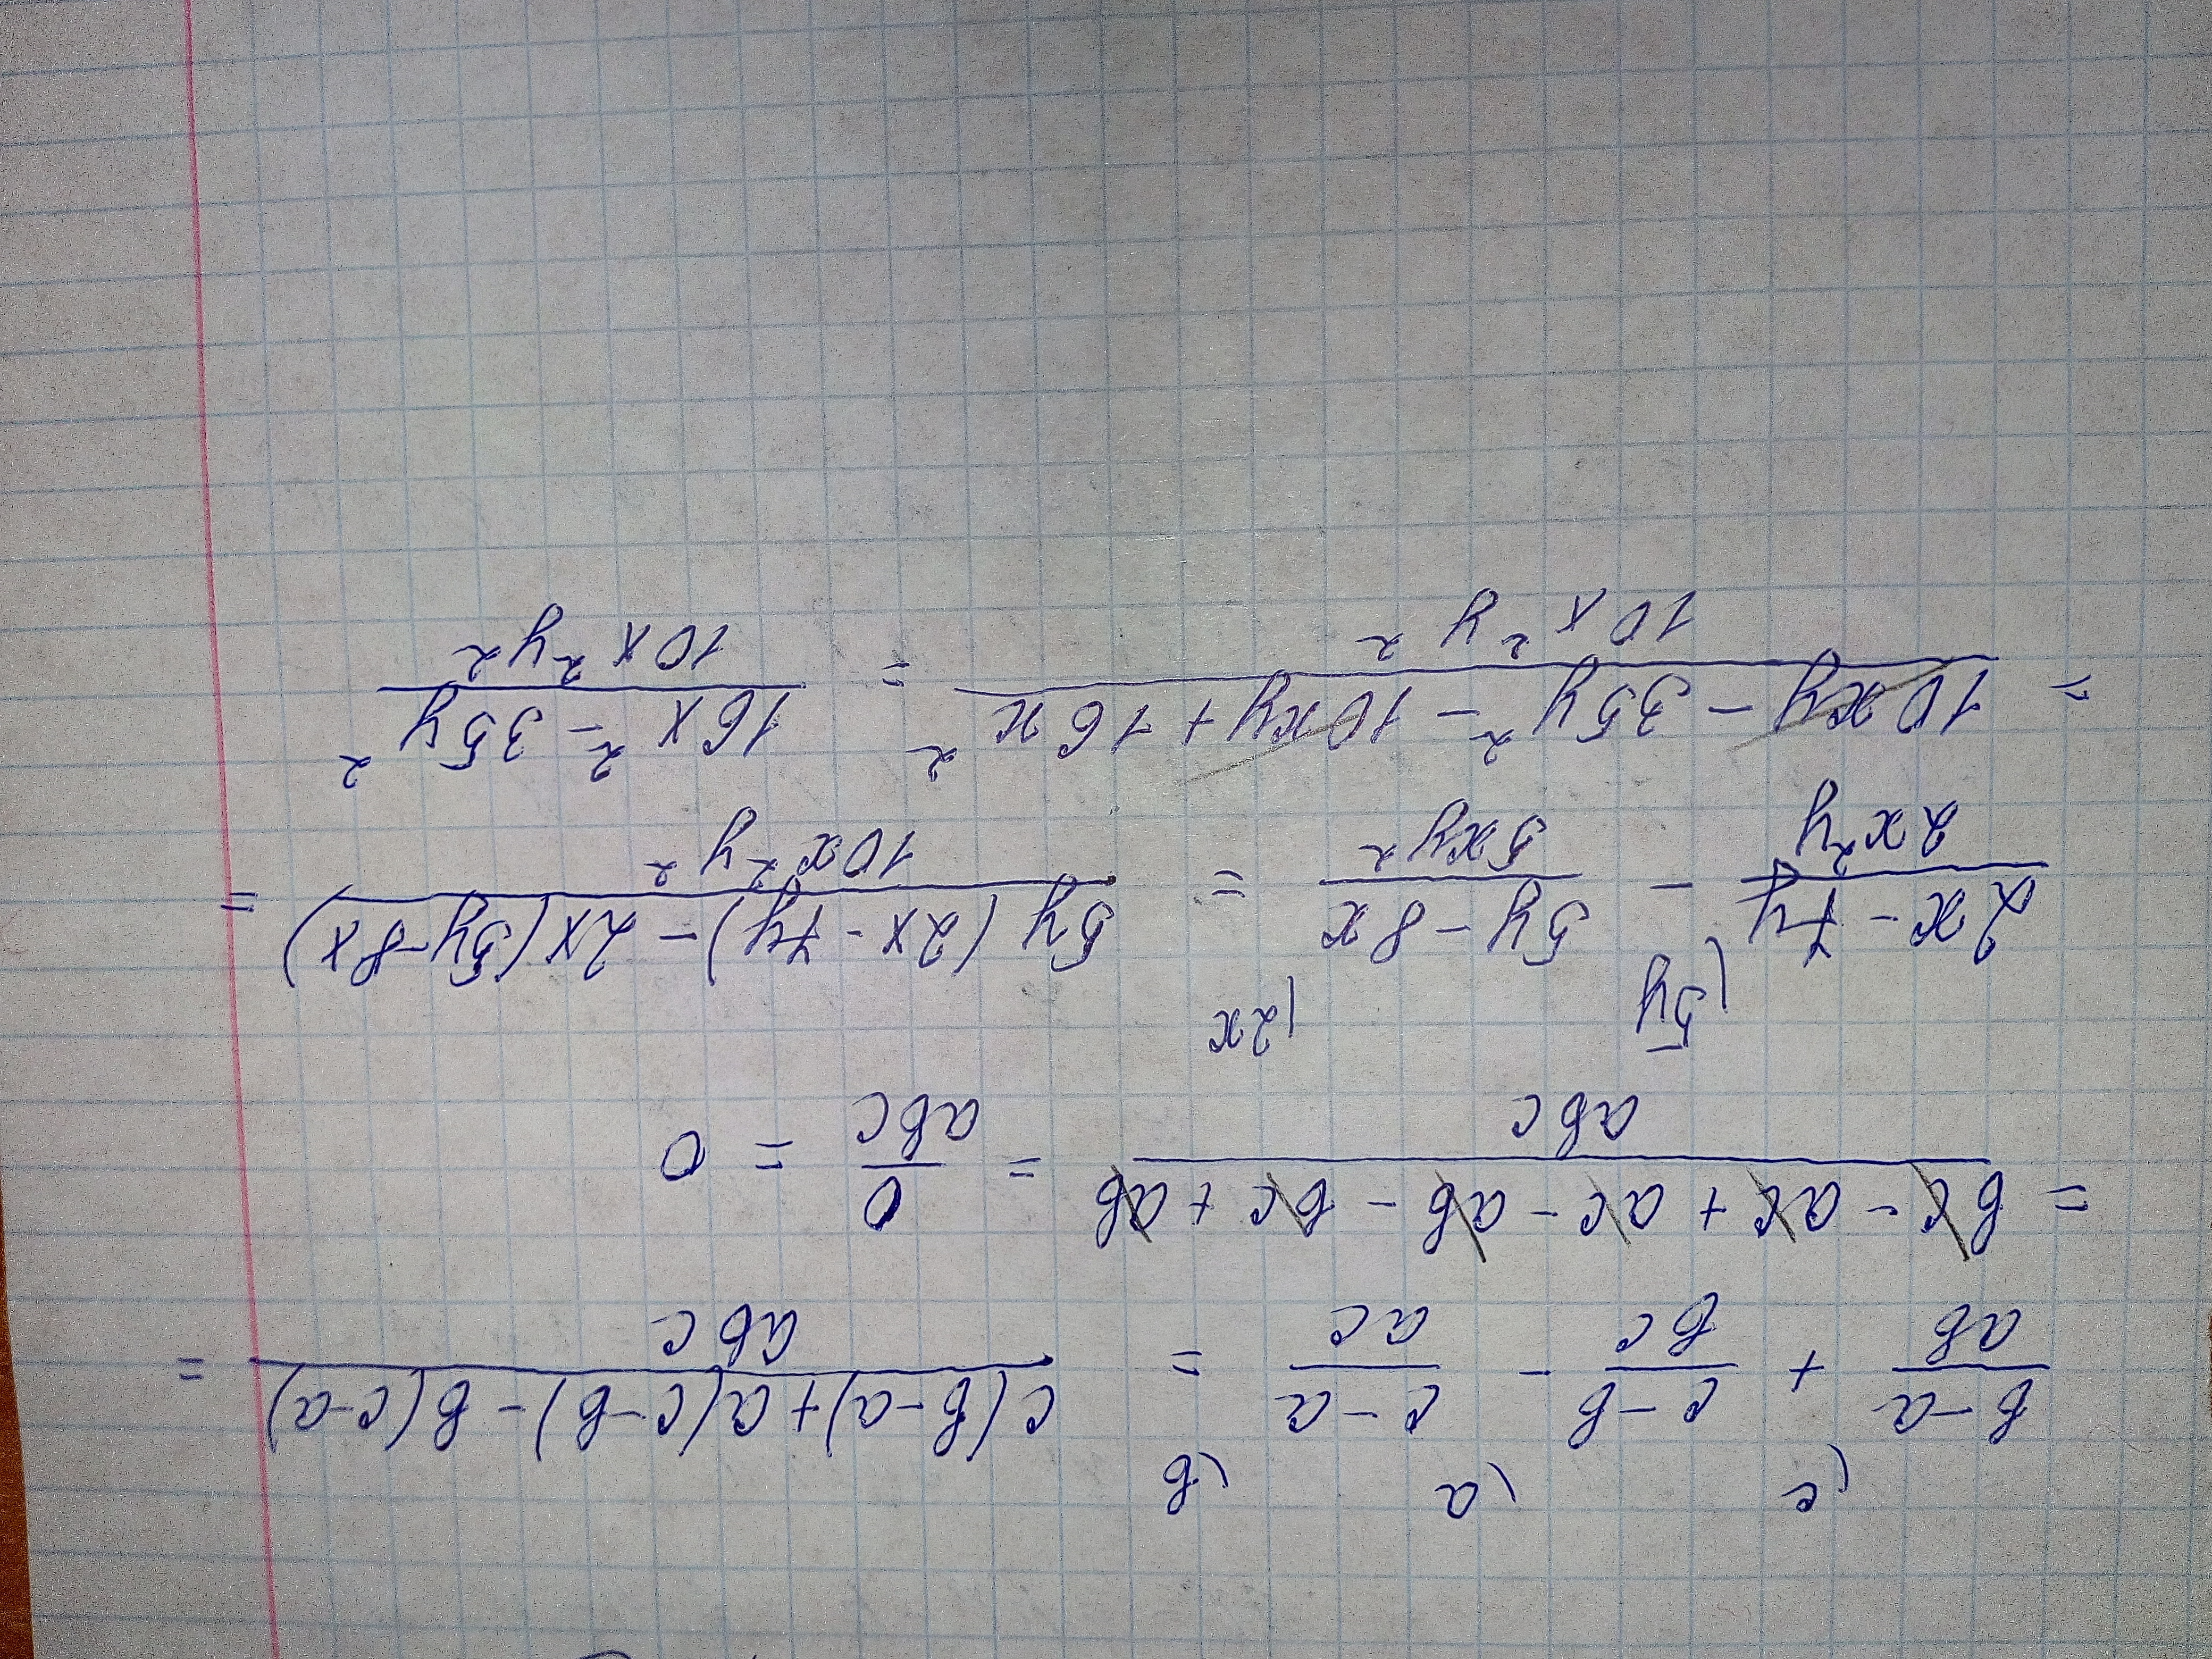 (c (a (b
b-a/ab + c-b/bc - c-a/ac = c(b-a)+a(c-b)-b(c-a)/abc =
= bc - ac + ac - ab - bc + ab/abc = 0/abc = 0
(5y (2x
2x - 7y/2x²y - 5y - 8x/5xy² = 5y(2x - 7y) - 2x(5y - 8x)/10x²y² =
= 10xy - 35y² - 10xy + 16x²/10x²y² = 16x² - 35y²/10x²y²